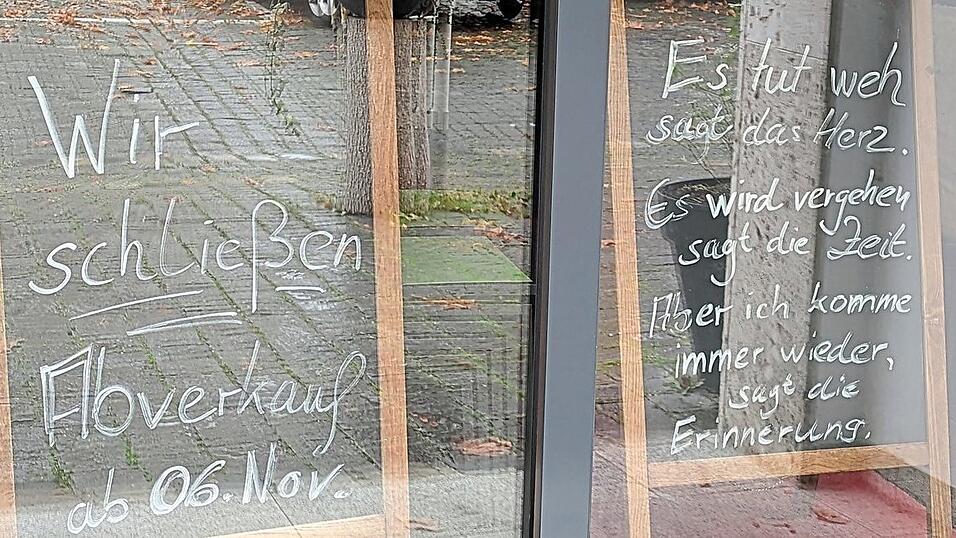 Wir
schließen
Abverkauf
ab 06. Nov.
Es tut weh
sagt das Herz.
Es wird vergehen
sagt die Zeit.
Aber ich komme
immer wieder,
sagt die
Erinnerung.